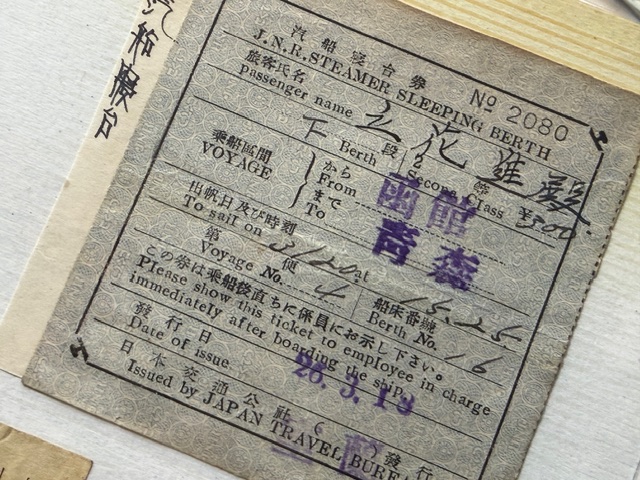 汽船寝台
汽船寝台券
J.N.R. STEAMER SLEEPING BERTH
№ 2080
旅客氏名
passenger name 立花 進 殿
下段 2等
Berth Second Class ¥300.
乗船區間 から 函館
VOYAGE From
まで 青森
To
出帆日及び時刻
To sail on 3/20 at 15.25.
第 4 便 船床番號
Voyage No. Berth No. 16
この券は乗船後直ちに係員にお示し下さい。
Please show this ticket to employee in charge
immediately after boarding the ship.
發行日
Date of issue 26.3.13
日本交通公社( )發行
Issued by JAPAN TRAVEL BUREA